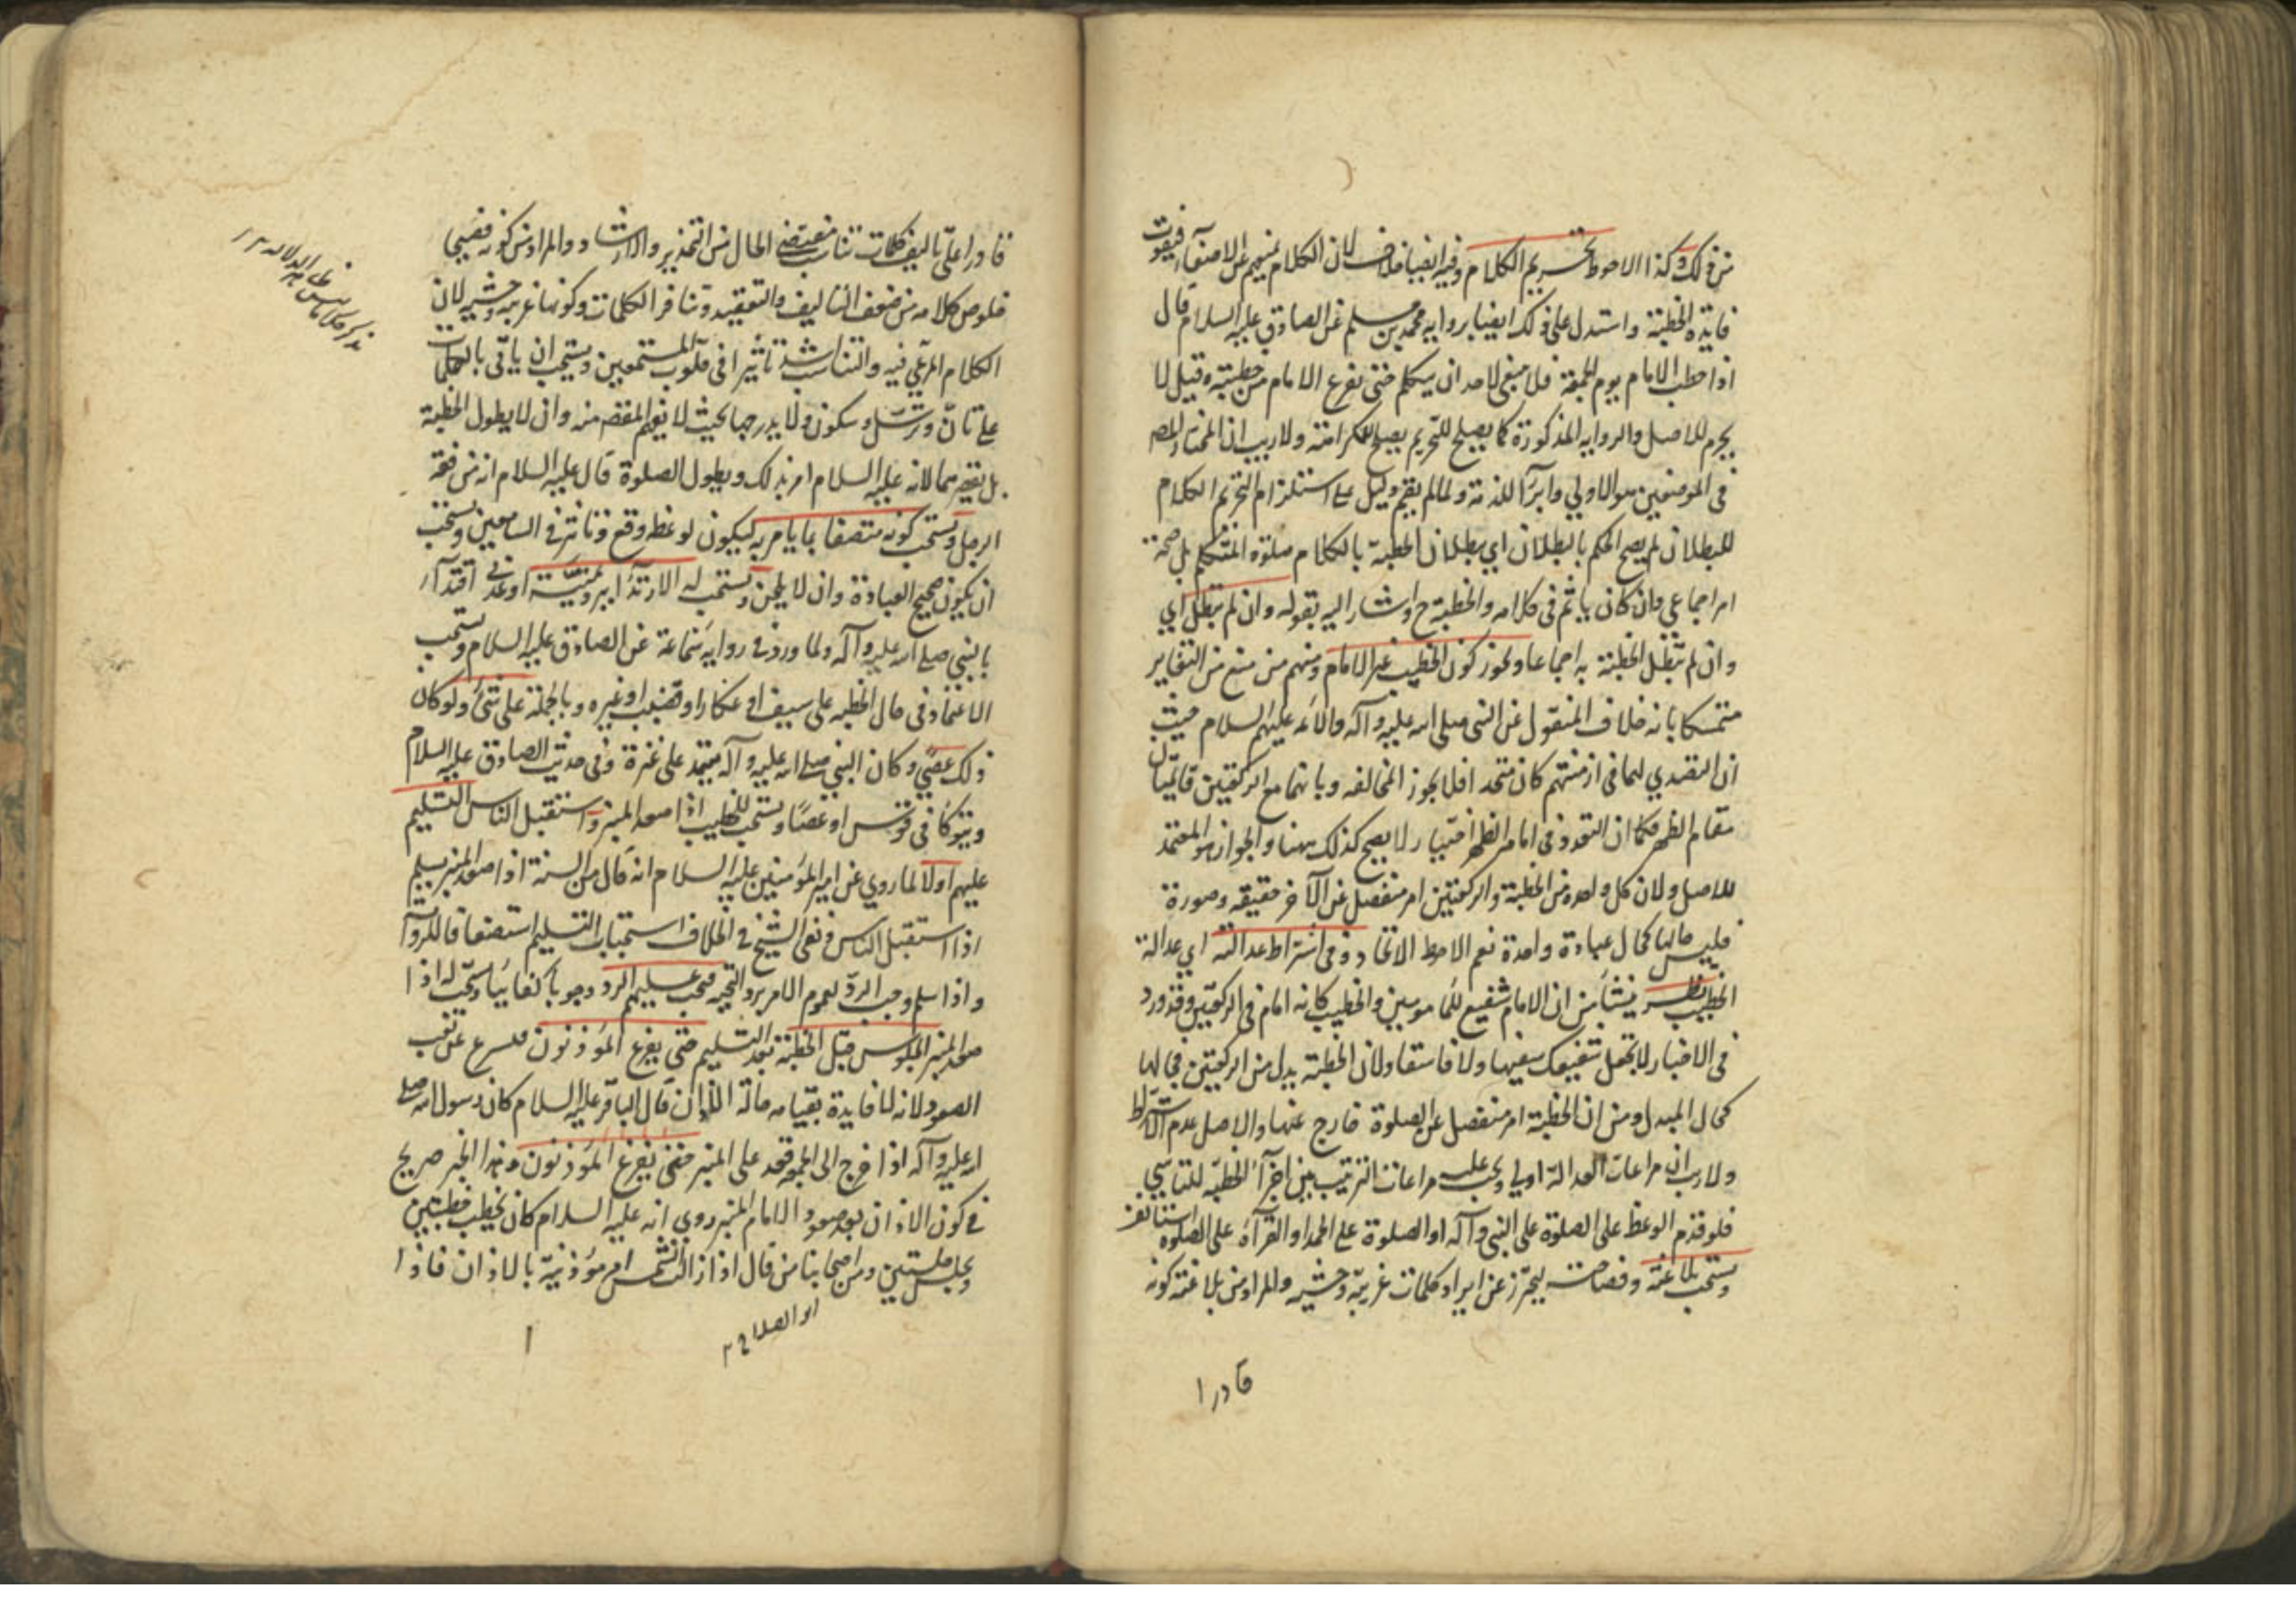 من ذلك وكذا الاحوط تحريم الكلام وفيه ايضا خلاف لان الكلام يمنعهم عن الاصغاء فيفوت
فايدة الخطبة واستدل على ذلك ايضا برواية محمد بن مسلم عن الصادق عليه السلام قال
اذا خطب الامام يوم الجمعة فلا ينبغي لاحد ان يتكلم حتى يفرغ الامام من خطبته وقيل لا
يحرم للاصل والرواية المذكورة كما يصلح للتحريم يصلح للكراهة ولا ريب ان المختار للمصـ
في الموضعين هو الاولي وابرأ للذمة ولما لم يقم دليل على استلزام التحريم الكلام
للبطلان لم يصح الحكم بالبطلان اي بطلان الخطبة بالكلام صلوة المتكلم بل صحة
امر اجماعي وان كان ياثم في كلامه والخطبة ح واشار اليه بقوله وان لم تبطل اي
وان لم تبطل الخطبة به اجماعا ويجوز كون الخطيب غير الامام ومنهم من منع من التغاير
متمسكا بانه خلاف المنقول عن النبي صلى الله عليه وآله والائمة عليهم السلام حيث
ان التصدي لهما في ازمنتهم كان متحدا فلا يجوز المخالفه وبانهما مع الركعتين قايمتان
مقام الظهر فكما ان التعدد في امام الظهر اختيارا لا يصح كذلك ههنا والجواز هو المعتمد
للاصل ولان كل واحدة من الخطبة والركعتين امر منفصل عن الآخر حقيقة وصورة
فليس حالها كحال عبادة واحدة نعم الاحوط الاتحاد وفي اشتراط عدالته اي عدالة
الخطيب نظر ينشأ من ان الامام شفيع للمامومين والخطيب كانه امام في الركعتين وقد ورد
في الاخبار لا تجعل شفيعك سفيها ولا فاسقا ولان الخطبة بدل من الركعتين فحالها
كحال المبدل ومن ان الخطبة امر منفصل عن الصلوة خارج عنها والاصل عدم الاشتراط
ولا ريب ان مراعات العدالة اولي ويجب عليه مراعات الترتيب بين اجزآء الخطبة للتاسي
فلو قدم الوعظ على الصلوة على النبي وآله او الصلوة على الحمد او القرآة على الصلوة استانف
ويستحب بلاغته وفصاحته ليحترز عن ايراد كلمات غريبة وحشية والمراد من بلاغته كونه
قادرا
قادرا على تاليف كلمات تناسب مقتضى الحال من التحذير والارشاد والمراد من كونه فصيحا
خلوص كلامه من ضعف التاليف والتعقيد وتنافر الكلمات وكونها غريبة وحشية لان
الكلام المرعي فيه والتناسب اشد تاثيرا في قلوب المستمعين ويستحب ان ياتي بالكلمات
على تان وترسل وسكون ولا يدرجها بحيث لا يفهم المقصد منه وان لا يطول الخطبة
بل يقصرهما لانه عليه السلام امر بذلك ويطول الصلوة قال عليه السلام انه من فقه
الرجل ويستحب كونه متصفا بما يامر به ليكون لوعظه وقع وتاثير في السامعين ويستحب
ان يكون صحيح العبادة وان لا يلحن ويستحب له الارتدآء ببرد يمنية او عدني اقتدآء
بالنبي صلى الله عليه وآله ولما ورد في رواية سماعة عن الصادق عليه السلام ويستحب
الاعتماد في حال الخطبة على سيف او عكاز او قضيب او غيره وبالجملة على شئ ولو كان
ذلك عصى وكان النبي صلى الله عليه وآله يعتمد على عنزة وفي حديث الصادق عليه السلام
ويتوكأ في قوس او عصا ويستحب للخطيب اذا صعد المنبر واستقبل الناس التسليم
عليهم اولا لما روي عن امير المؤمنين عليه السلام انه قال من السنة اذا صعد المنبر يسلم
اذا استقبل الناس ونفى الشيخ في الخلاف استحباب التسليم استضعافا للروآية
واذا سلم وجب الرد لعموم الامر برد التحية فيجب عليهم الرد وجوبا كفائيا ويستحب له اذا
صعد المنبر الجلوس قبل الخطبة بعد التسليم حتى يفرغ المؤذنون عن تعب
الصعود لانه لا فايدة بقيامه حالة الاذان قال الباقر عليه السلام كان رسول الله صلى
الله عليه وآله اذا خرج الى الجمعة قعد على المنبر حتى يفرغ المؤذنون وهذا الخبر صريح
في كون الاذان بعد صعود الامام المنبر وروي انه عليه السلام كان يخطب خطبتين
ويجلس جلستين ومن اصحابنا من قال اذا زالت الشمس امر مؤذنيه بالاذان فاذا
ابو الصلاح